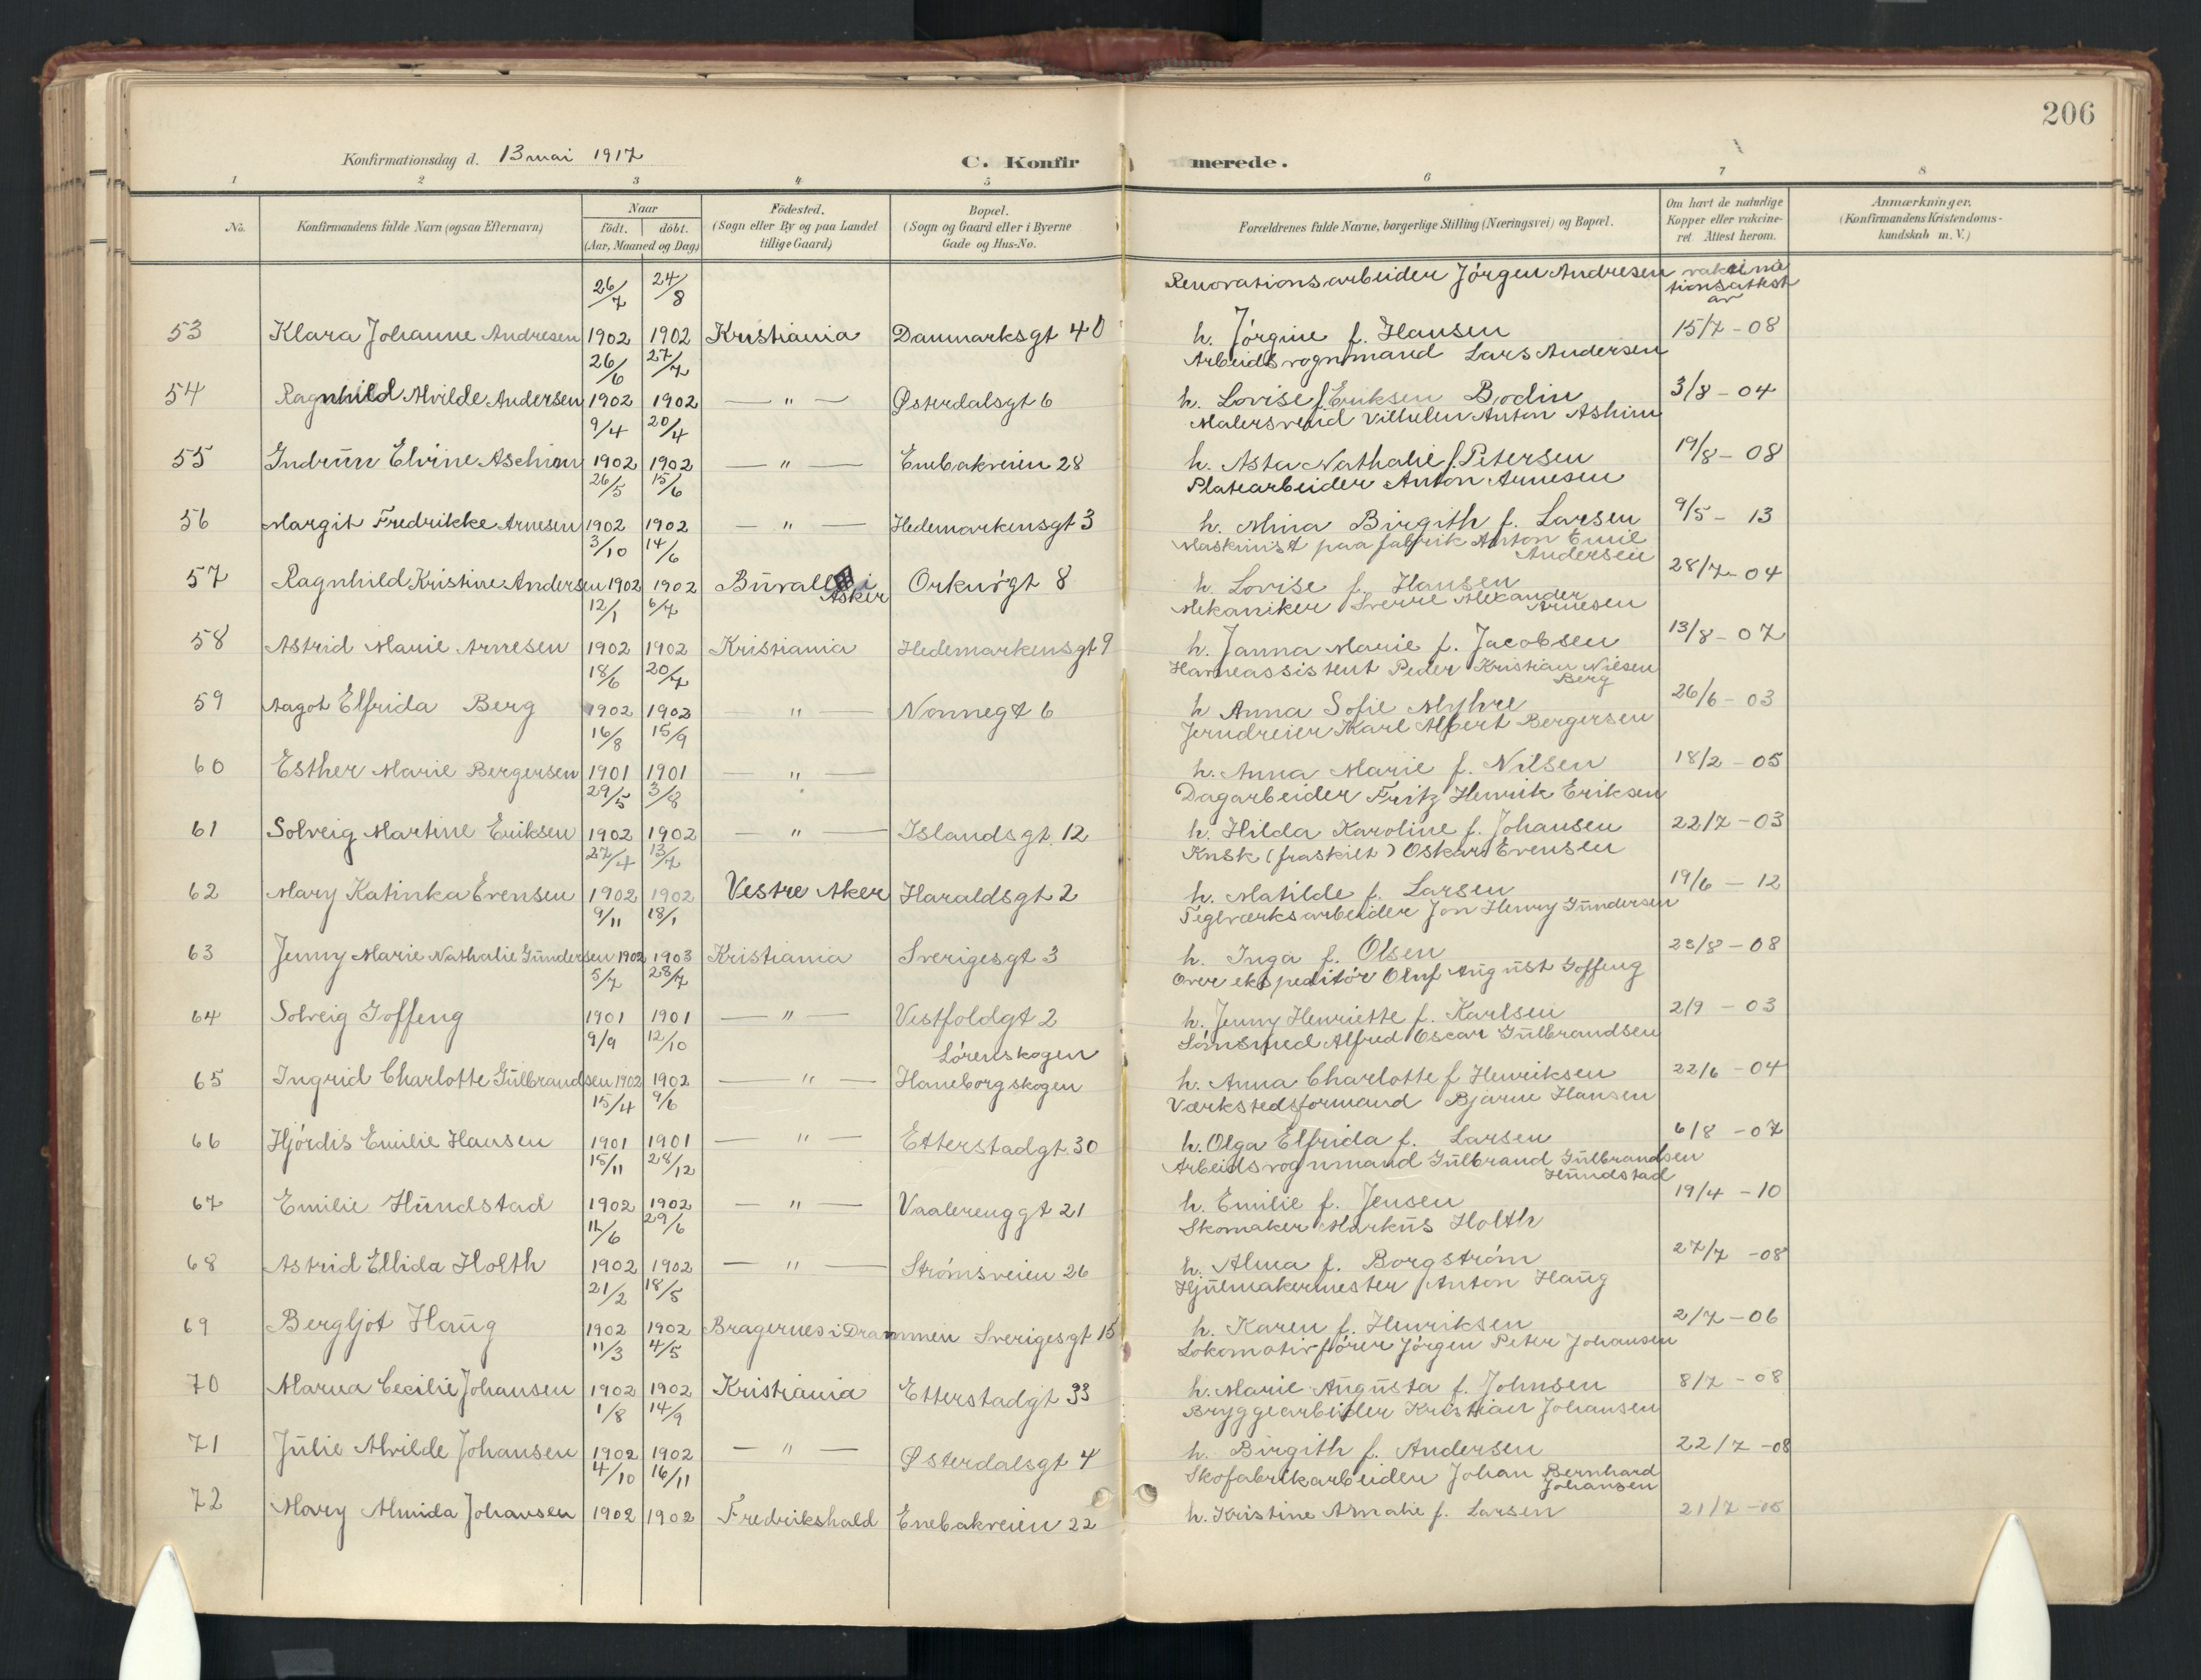 206
Konfirmationsdag d. 13 mai 1917
C. Konfirmerede.
1 2 3 4 5 6 7 8
No. Konfirmandens fulde Navn (ogsaa Efternavn) Naar födt. döbt. (Aar, Maaned og Dag) Födested. (Sogn eller By og paa Landet tillige Gaard) Bopæl. (Sogn og Gaard eller i Byerne Gade og Hus-No. Forældrenes fulde Navne, borgerlige Stilling (Næringsvei) og Bopæl. Om havt de naturlige Kopper eller vakcineret. Attest herom. Anmærkninger. (Konfirmandens Kristendomskundskab m. V.)
26/7 24/8 Renovationsarbeider Jörgen Andresen vakcinationsattest av
53 Klara Johanne Andresen 1902 1902 Kristiania Danmarksgt 40 h. Jörgine f. Hansen 15/7 - 08
26/6 27/7 Arbeidsvognmand Lars Andersen
54 Ragnhild Alvilde Andersen 1902 1902 — " — Østerdalsgt 6 h. Lovise f. Eriksen Bodin 3/8 - 04
9/4 20/4 Malersvend Vilhelm Anton Ashim
55 Gudrun Elvine Aschim 1902 1902 — " — Enebakveien 28 h. Asta Nathalie f. Petersen 19/8 - 08
26/5 15/6 Platearbeider Anton Arnesen
56 Margit Fredrikke Arnesen 1902 1902 — " — Hedemarkensgt 3 h. Mina Birgith f. Larsen 9/5 - 13
3/10 14/6 Maskinist paa fabrik Anton Emil Andersen
57 Ragnhild Kristine Andersen 1902 1902 i Asker Orknøgt 8 h. Lovise f. Hansen 28/7 - 04
12/1 6/7 Mekaniker Sverre Alexander Arnesen
58 Astrid Marie Arnesen 1902 1902 Kristiania Hedemarkensgt 9 h. Janna Marie f. Jacobsen 13/8 - 07
18/6 20/7 Havneassistent Peder Kristian Nilsen Berg
59 Aagot Elfrida Berg 1902 1902 " — Nonnegt 6 h Anna Sofie Myhre 26/6 - 03
16/8 15/9 Jerndreier Karl Albert Bergersen
60 Esther Marie Bergersen 1901 1901 — " — h. Anna Marie f. Nilsen 18/2 - 05
29/5 3/8 Dagarbeider Fritz Henrik Eriksen
61 Solveig Martine Eriksen 1902 1902 — " — Islandsgt. 12 h. Hilda Karoline f. Johansen 22/7 - 03
27/4 13/7 Kusk (fraskilt) Oskar Evensen
62 Mary Katinka Evensen 1902 1902 Vestre Aker Haraldsgt 2 h. Matilde f. Larsen 19/6 - 12
9/11 18/1 Teglværksarbeider Jon Henry Gundersen
63 Jenny Marie Nathalie Gundersen 1902 1903 Kristiania Sverigesgt 3 h. Inga f. Olsen 23/8 - 08
5/7 28/7 Over ekspeditör Oluf August Goffeng
64 Solveig Goffeng 1901 1901 — " — Vestfoldgt 2 h. Jenny Henriette f. Karlsen 2/9 - 03
9/9 12/10 Lörenskogen Alfred Oscar Gulbrandsen
65 Ingrid Charlotte Gulbrandsen 1902 1902 — " — Haneborgskogen h. Anna Charlotte f Henriksen 22/6 - 04
15/4 9/6 Værkstedsformand Bjarne Hansen
66 Hjördis Emilie Hansen 1901 1901 — " — Etterstadgt. 30 h. Olga Elfrida f. Larsen 6/8 - 07
15/11 28/12 Arbeidsvognmand Gulbrand Gulbrandsen Hundstad
67 Emilie Hundstad 1902 1902 — " — Vaalerenggt 21 h. Emilie f. Jensen 19/4 - 10
11/6 29/6 Skomaker Markus Holth
68 Astrid Ellida Holth 1902 1902 — " — Strømsveien 26 h. Alma f. Borgström 27/7 - 08
21/2 18/5 Hjulmakermester Anton Haug
69 Bergljot Haug 1902 1902 Bragernes i Drammen Sverigesgt 15 h. Karen f. Henriksen 2/7 - 06
11/3 4/5 Lokomotivförer Jörgen Peter Johansen
70 Marna Cecilie Johansen 1902 1902 Kristiania Etterstadgt 33 h. Marie Augusta f. Johnsen 8/7 - 08
1/8 14/9 Bryggearbeider Kristian Johansen
71 Julie Alvilde Johansen 1902 1902 — " — Østerdalsgt 4 h. Birgith f. Andersen 22/7 - 08
4/10 16/11 Skofabrikarbeider Johan Bernhard Johansen
72 Mary Almida Johansen 1902 1902 Fredrikshald Enebakveien 22 h. Kristine Amalie f. Larsen 21/7 - 15